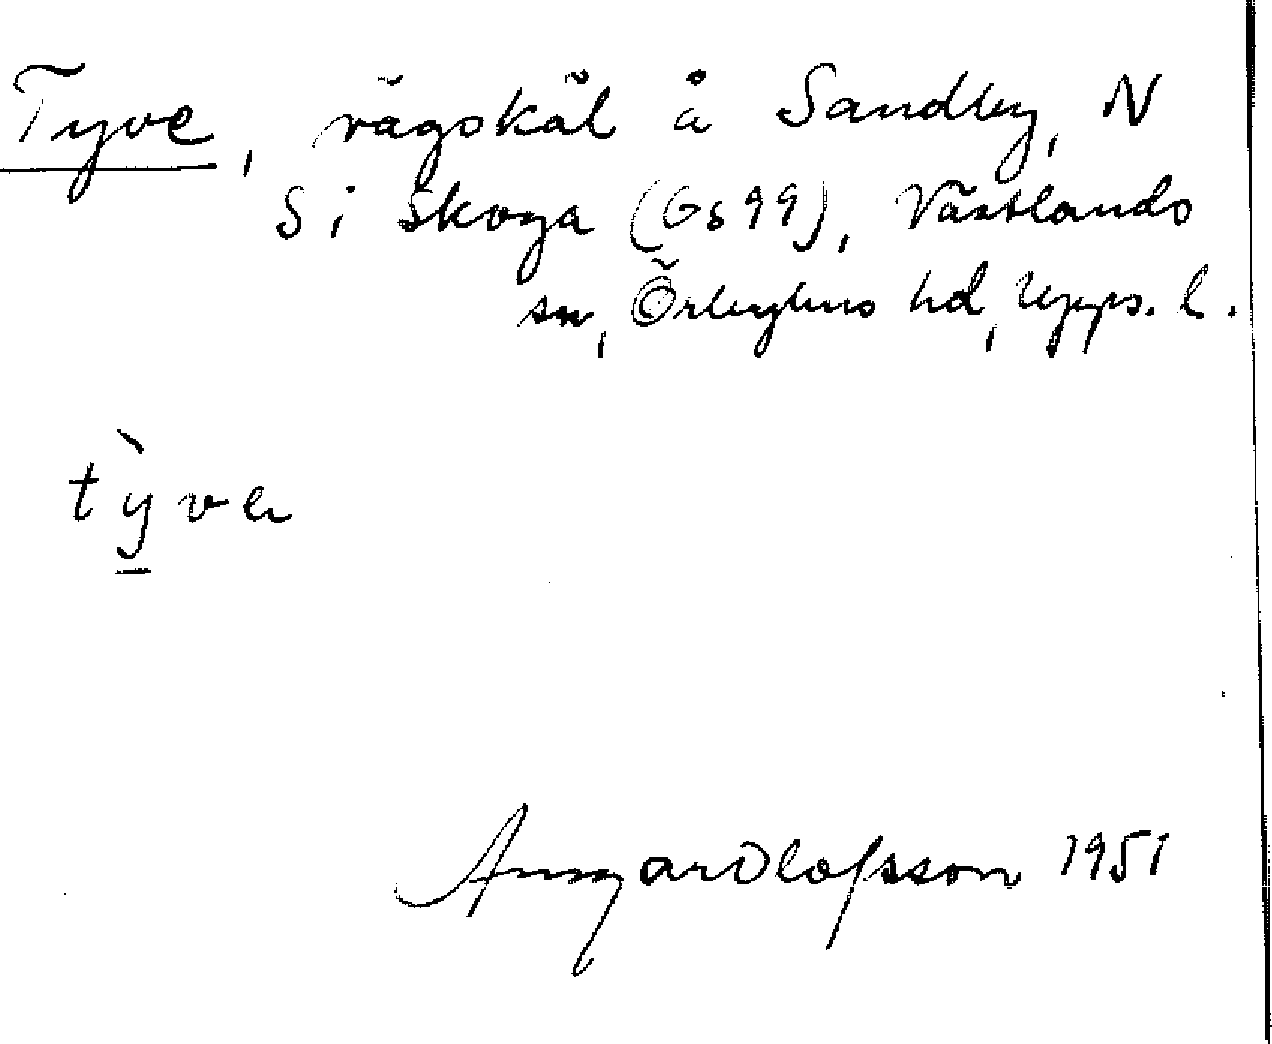 Tyve, vägskäl å Sandby, N
S i Skoga (Gs 99), Västlands
sn, Örbyhus hd, Upps. l.
tỳve
Ansgar Olofsson 1951